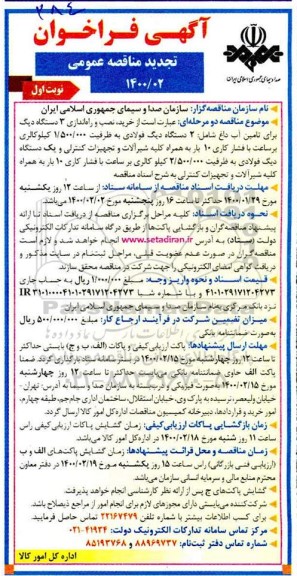 آگهی فراخوان
صدا و سیمای جمهوری اسلامی ایران
تجدید مناقصه عمومی
۱۴۰۰/۰۲
نوبت اول
نام سازمان مناقصه‌گزار: سازمان صدا و سیمای جمهوری اسلامی ایران
موضوع مناقصه دو مرحله‌ای: عبارت است از خرید، نصب و راه‌اندازی ۳ دستگاه دیگ
برای تامین آب داغ شامل: ۲ دستگاه دیگ فولادی به ظرفیت ۱/۵۰۰/۰۰۰ کیلوکالری
برساعت با فشار کاری ۱۰ بار به همراه کلیه شیرآلات و تجهیزات کنترلی و یک دستگاه
دیگ فولادی به ظرفیت ۲/۵۰۰/۰۰۰ کیلو کالری بر ساعت با فشار کاری ۱۰ بار به همراه
کلیه شیرآلات و تجهیزات کنترلی به شرح اسناد مناقصه
مهلت دریافت اسناد مناقصه از سامانه ستاد: از ساعت ۱۲ روز یکشنبه
مورخ ۱۴۰۰/۰۱/۲۹ حداکثر تا ساعت ۱۶ روز پنجشنبه مورخ ۱۴۰۰/۰۲/۰۲ می‌باشد.
نحوه دریافت اسناد: کلیه مراحل برگزاری مناقصه از دریافت اسناد تا ارائه
پیشنهاد مناقصه‌گران و بازگشایی پاکت‌ها از طریق درگاه سامانه تدارکات الکترونیکی
دولت (ستاد) به آدرس www.setadiran.ir انجام خواهد شد و لازم است
مناقصه‌گران در صورت عدم عضویت قبلی، مراحل ثبت‌نام در سایت مذکور و
دریافت گواهی امضای الکترونیکی را جهت شرکت در مناقصه محقق سازند
قیمت اسناد و نحوه واریز وجه: مبلغ ۱/۰۰۰/۰۰۰ ریال به حساب جاری
نزد بانک مرکزی به نام سازمان صدا و سیمای جمهوری اسلامی ایران
میزان تضمین شرکت در فرآیند ارجاع کار: مبلغ ۵۰۰/۰۰۰/۰۰۰ ریال
به صورت ضمانتنامه بانکی
مهلت ارسال پیشنهادها: پاکت ارزیابی کیفی و پاکات (الف، ب و ج) بایستی حداکثر
تا ساعت ۱۲ روز چهارشنبه مورخ ۱۴۰۰/۰۲/۱۵ در سامانه ستاد بارگذاری گردد ضمنا
پاکت الف حاوی ضمانتنامه بانکی می‌بایست حداکثر تا ساعت ۱۲ روز چهارشنبه
مورخ ۱۴۰۰/۰۲/۱۵ به صورت فیزیکی و در پاکت مهر و موم شده به آدرس: تهران -
خیابان ولیعصر، نرسیده به پارک وی، خیابان استقلال، ساختمان اداری جام‌جم، طبقه چهارم،
امور خرید و قراردادها، دبیرخانه کمیسیون مناقصات اداره کل امور کالا ارسال گردد.
زمان بازگشایی پاکات ارزیابی کیفی: زمان گشایش پاکات ارزیابی کیفی راس
ساعت ۱۱ روز شنبه مورخ ۱۴۰۰/۰۲/۱۸ در اداره کل امور کالا می‌باشد.
زمان مناقصه و محل قرائت پیشنهادها: زمان گشایش پاکت‌های الف و ب
(ارزیابی فنی بازرگانی) راس ساعت ۱۵ روز یکشنبه مورخ ۱۴۰۰/۰۲/۱۹ در دفتر معاون
محترم منابع مالی و سرمایه انسانی سازمان می‌باشد.
گشایش پاکت‌های ج پس از ارائه نظر کارشناسی انجام خواهد پذیرفت.
شرکت‌کننده می‌بایستی دارای مجوزهای لازم برای انجام امور از مراجع ذیصلاح باشد.
برای کسب اطلاعات بیشتر با شماره تلفن ۲۲۱۶۷۴۷۹ تماس حاصل فرمایید.
مرکز تماس سامانه تدارکات الکترونیک دولت: ۴۱۹۳۴-۰۲۱
شماره تماس دفتر ثبت‌نام: ۸۸۹۶۹۷۳۷ و ۸۵۱۹۳۷۶۸
اداره کل امور کالا